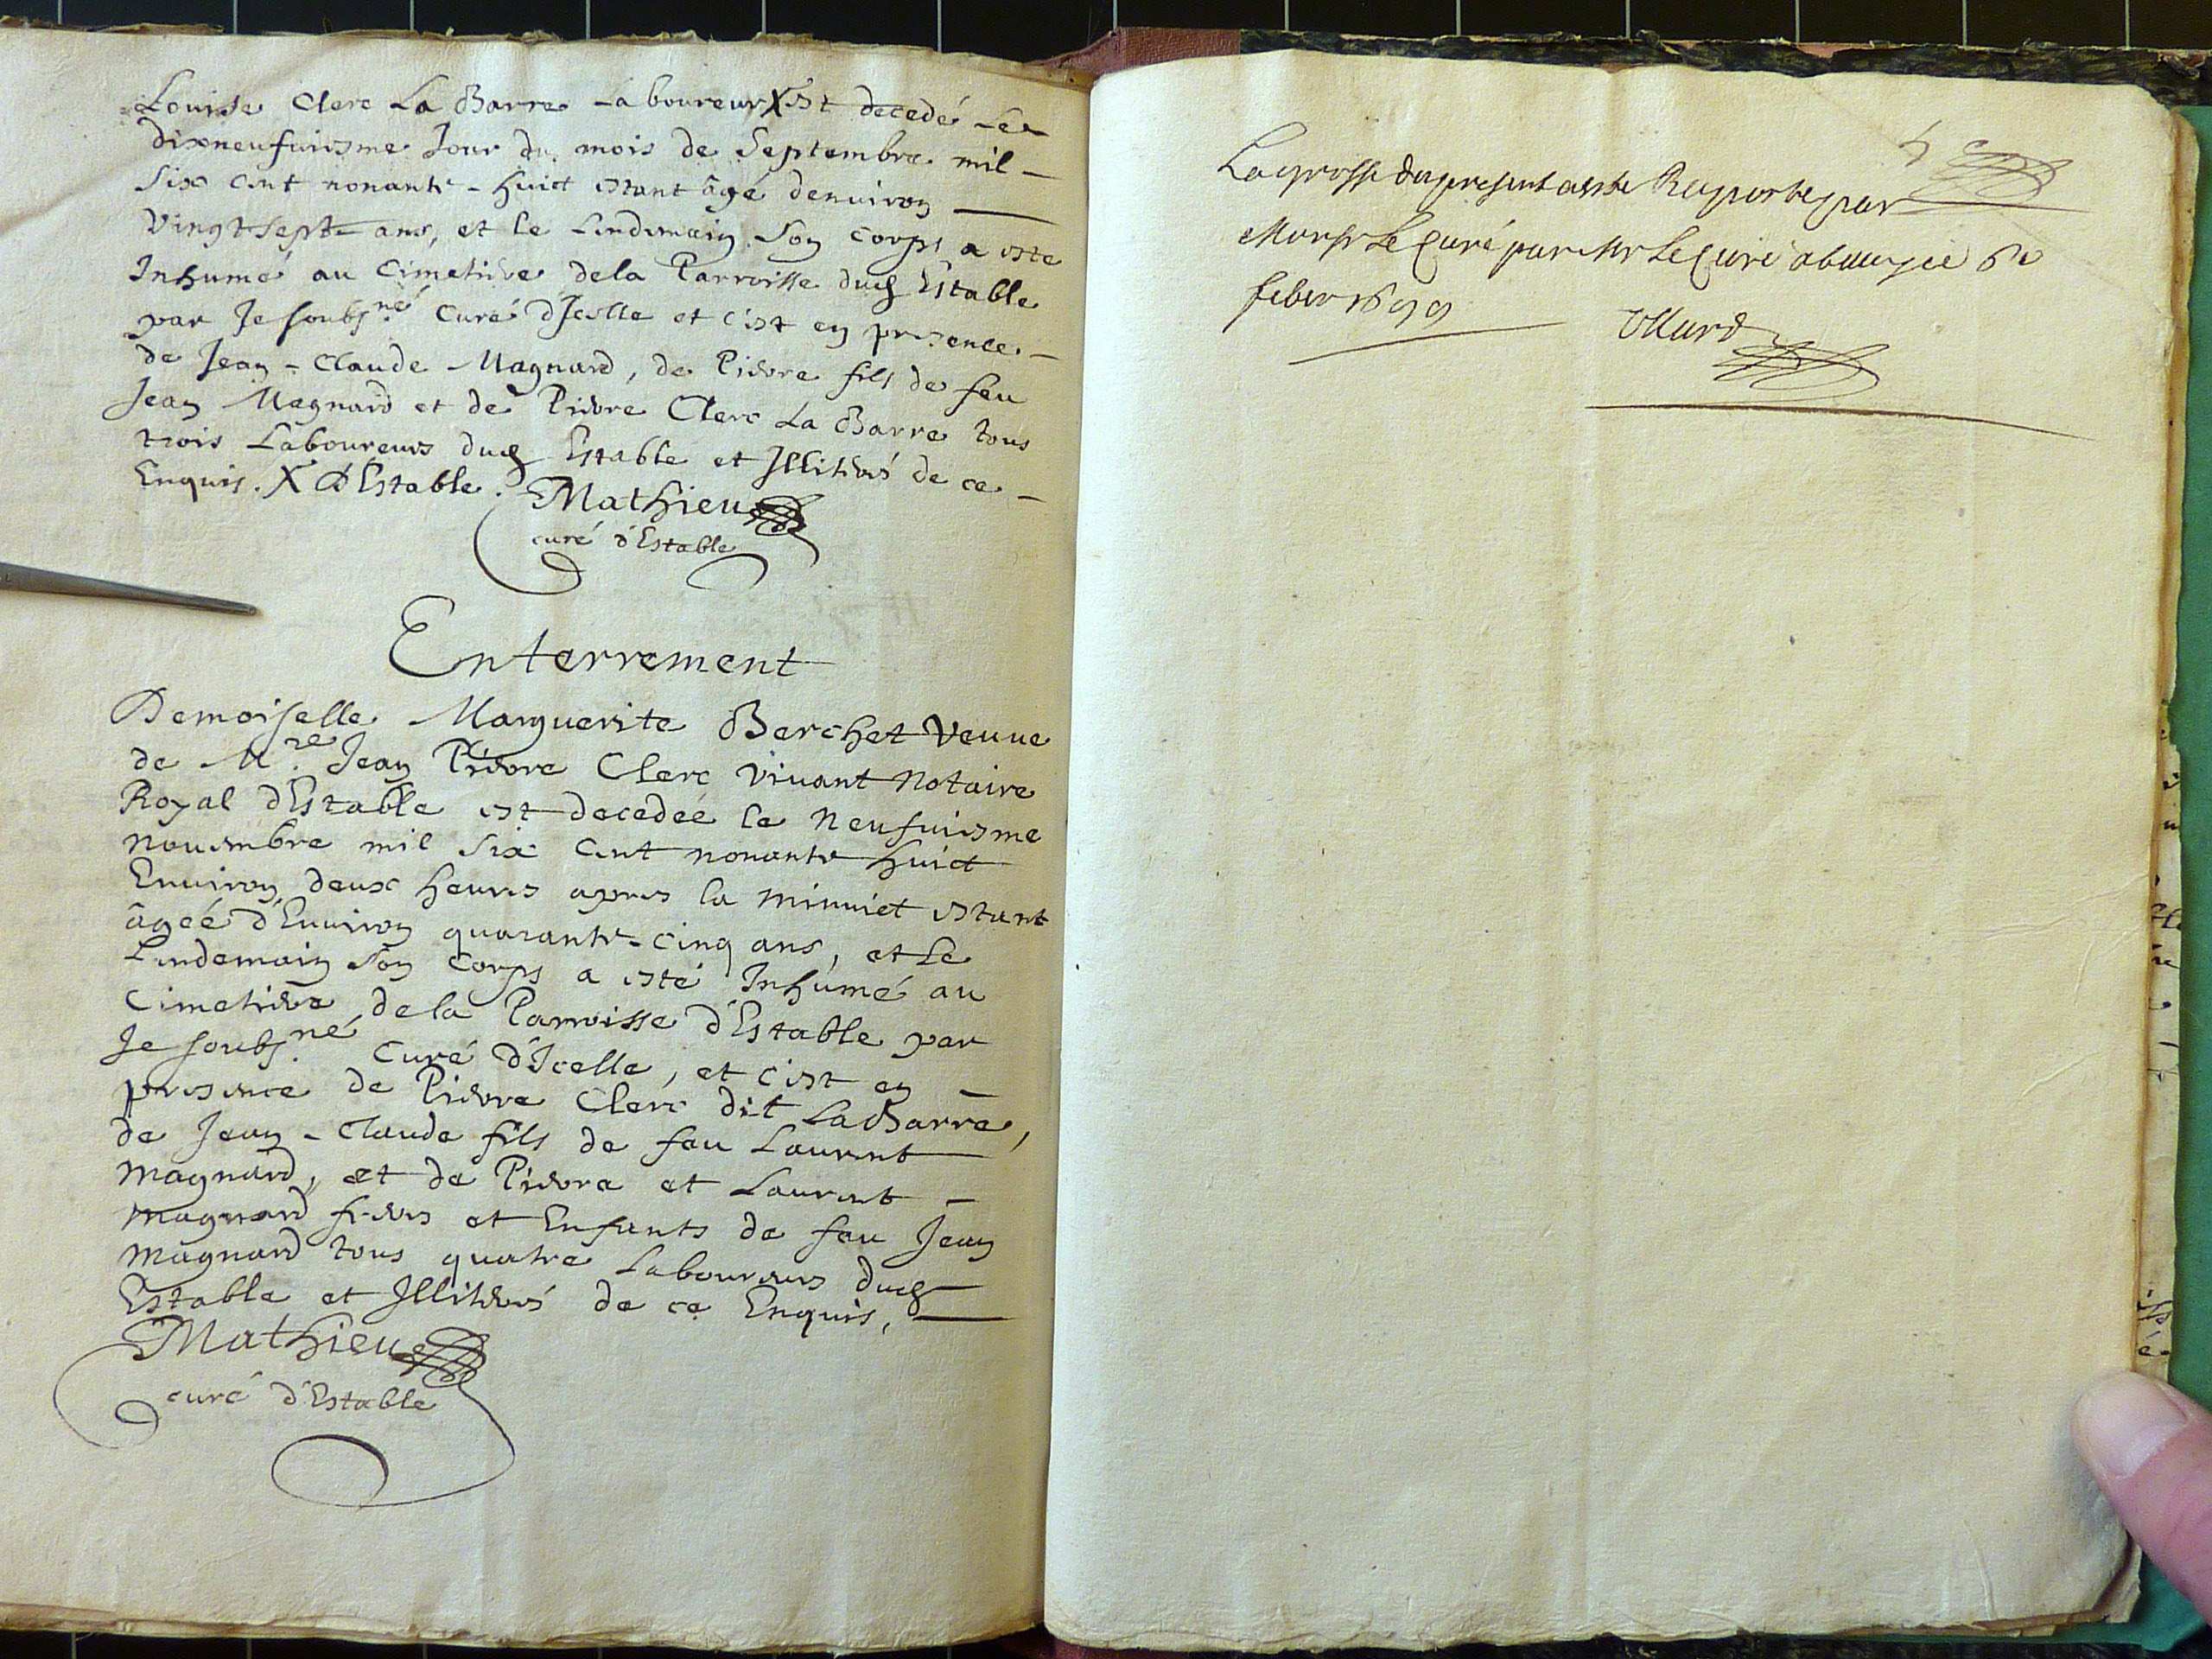 Louise Clerc La Barre Laboureur X est decedé Le
dixneufuiesme Jour du mois de Septembre mil
Six cent nonante-huict estant âgé denuiron
Vingt-sept ans, et le Lendemain Son corps a este
Inhumé au Cimetiere dela Parroisse dud Estable
par Je soubsné. Curé d'Icelle et c'est en presence
de Jean-Claude Magnard, de Pierre fils de feu
Jean Magnard et de Pierre Clerc La Barre tous
trois Laboureurs dud Estable et Illiterés de ce
Enquis. X d'Estable. Mathieu
curé d'Estable
Enterrement
Demoiselle Marguerite Berchet Veuue
de M.re Jean Pierre Clerc viuant Notaire
Royal d'Estable est decedeé le Neufuiesme
Nouembre mil Six Cent nonante huict
Enuiron deux heures apres la minuiet estant
âgeé d'Enuiron quarante-cinq ans, et Le
Lendemain Son Corps a esté Inhumé au
Cimetiere dela Parroisse d'Estable par
Je soubs.né Curé d'Icelle, et c'est en
presence de Pierre Clerc dit LaBarre,
de Jean-Claude fils de feu Laurent
Magnard, et de Pierre et Laurent
Magnard freres et Enfants de feu Jean
Magnard tous quatre Laboureurs dud
Estable et Illiterés de ce Enquis,
Mathieu
curé d'Estable
La grosse du present a esté Raportes par
Monsr Le Curé par Mr Le Curé 6e
feber 1699